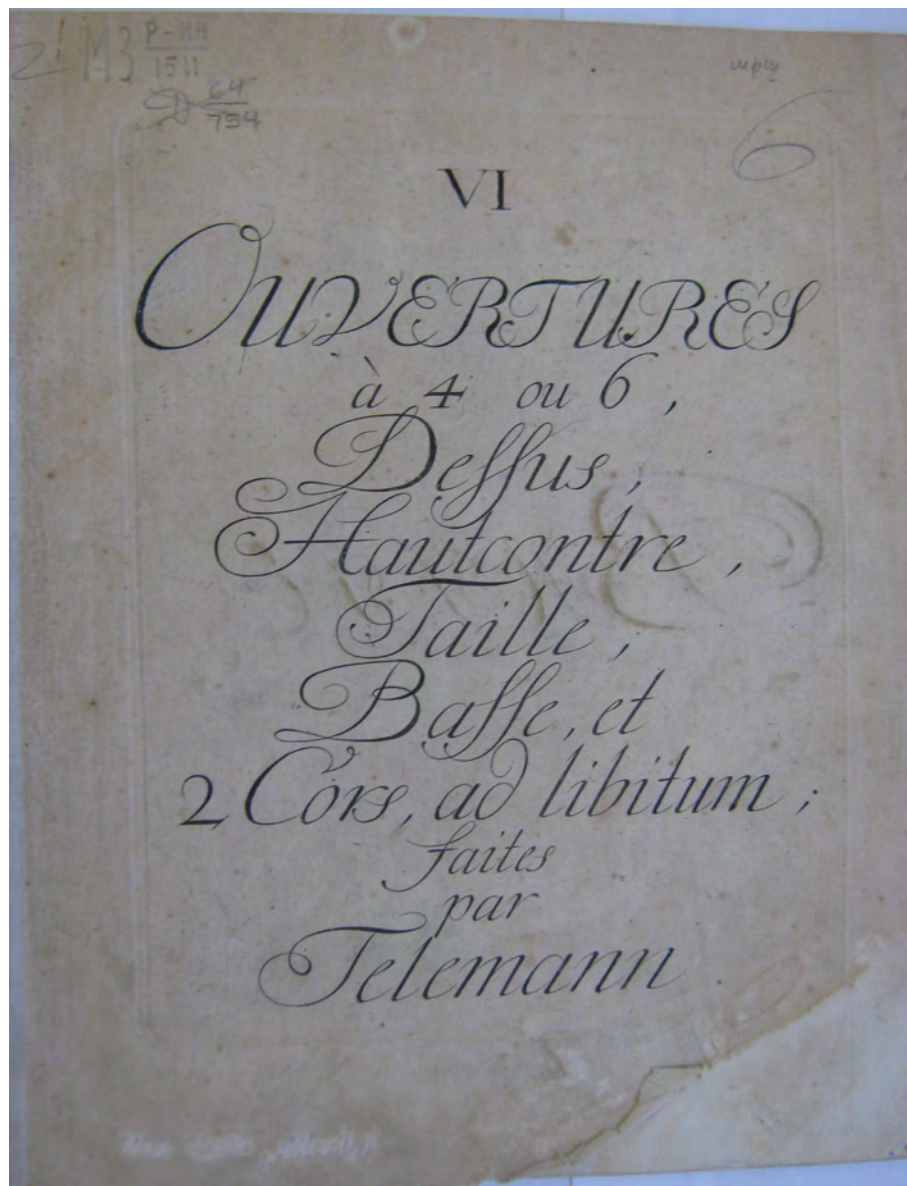 МЗ Р-ИН
1511
64
754
6
VI
OUVERTURES
à 4 ou 6,
Dessus,
Hautcontre,
Taille,
Basse, et
2 Cors, ad libitum;
faites
par
Telemann.